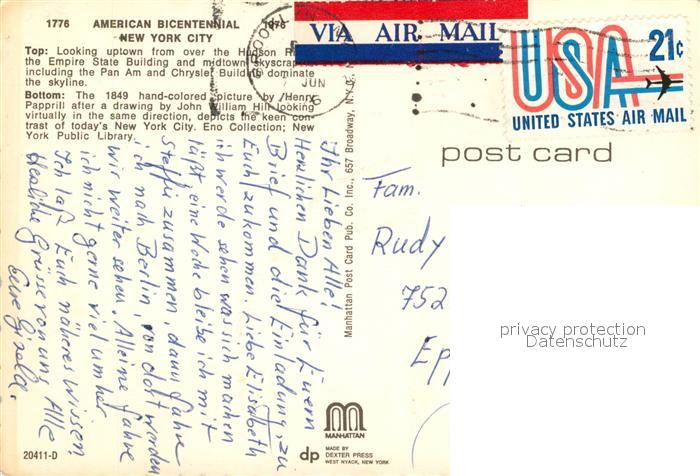 1776 AMERICAN BICENTENNIAL 1976
NEW YORK CITY
Top: Looking uptown from over the Hudson
the Empire State Building and midtown skyscrap
including the Pan Am and Chrysler Building dominate
the skyline.
Bottom: The 1849 hand-colored picture by Henry
Papprill after a drawing by John William Hill looking
virtually in the same direction, depicts the keen con-
trast of today's New York City. Eno Collection; New
York Public Library.
VIA AIR MAIL
JUN
USA 21¢
UNITED STATES AIR MAIL
post card
Manhattan Post Card Pub. Co. Inc., 657 Broadway, N.Y.
Ihr Lieben Alle!
Herzlichen Dank für Euern
Brief und die Einladung, zu
Euch zukommen. Liebe Elisabeth
ich werde sehen was sich machen
läßt eine Woche bleibe ich mit
Steffi zusammen, dann fahre
ich nach Berlin, von dort werden
wir weiter sehen. Alleine fahre
ich nicht gerne viel umher
Ich laß Euch näheres wissen
Herzliche Grüsse von uns Alle
Eure Gisela.
Fam.
Rudy
752
Epp
privacy protection
Datenschutz
MANHATTAN
dp MADE BY
DEXTER PRESS
WEST NYACK, NEW YORK
20411-D